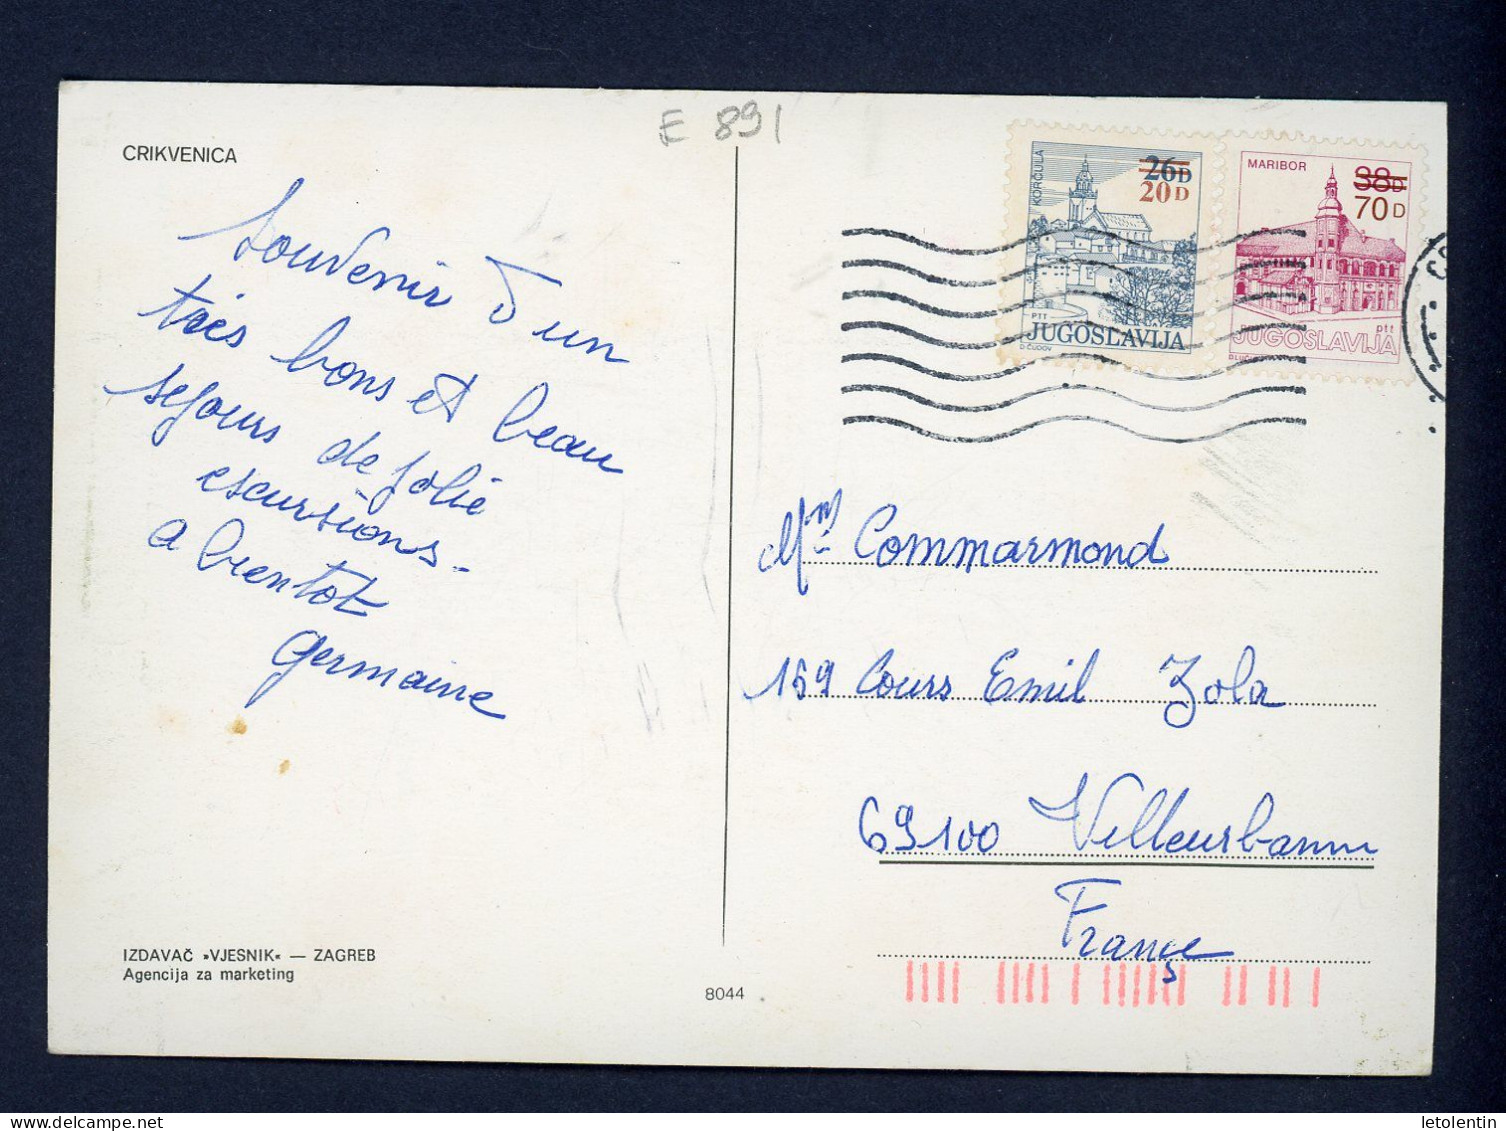 E 891
CRIKVENICA
Souvenir d'un
très bons et beau
sejours de jolie
escursions -
a bientot
Germaine
IZDAVAČ »VJESNIK« — ZAGREB
Agencija za marketing
8044
KORČULA
26D
20 D
PTT
JUGOSLAVIJA
MARIBOR
38D
70 D
ptt
JUGOSLAVIJA
Commarmond
159 Cours Emil Zola
69100 Villeurbanne
Françe
letolentin